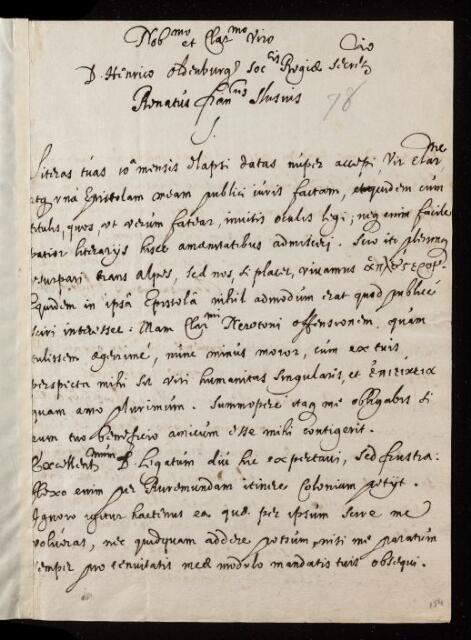 Nob^mo et Clar^mo Viro
D. Henrico Oldenburg Soc^tis Regiæ Secret^rio
Renatus Fran^cus Slusius
S.
Literas tuas 10^a mensis elapsi datas nuper accepi, Vir Clar^me
atq unà Epistolam meam publici iuris factam, et quidem cum
titulis, quos, ut verum fatear, invitis oculis legi; neq enim facile
patior literarijs hisce amœnitatibus admisceri. Scio ita plerumq
usurpari trans alpes, sed nos, si placet, vivamus
Equidem in ipsâ Epistolâ nihil admodum erat quod publicè
sciri interesset: Nam Clar^mi Newtoni offensionem, quam
tulissem ægerrimè, nunc minus moror, cùm ex tuis
perspecta mihi sit viri humanitas singularis, et ἐπιείκεια
quam amo plurimum. Summopere itaq me obligabis si
eum tuo beneficio amicum esse mihi contigerit.
Excellent^mum D. Legatum diu hic expectavi, sed frustra:
enim per Ruremundam itinere Coloniam petijt.
Ignoro igitur hactenus ea quæ per ipsum scire me
volueras, nec quidquam addere possum, nisi me paratum
semper pro tenuitatis meæ modulo mandatis tuis obsequi.
78
154